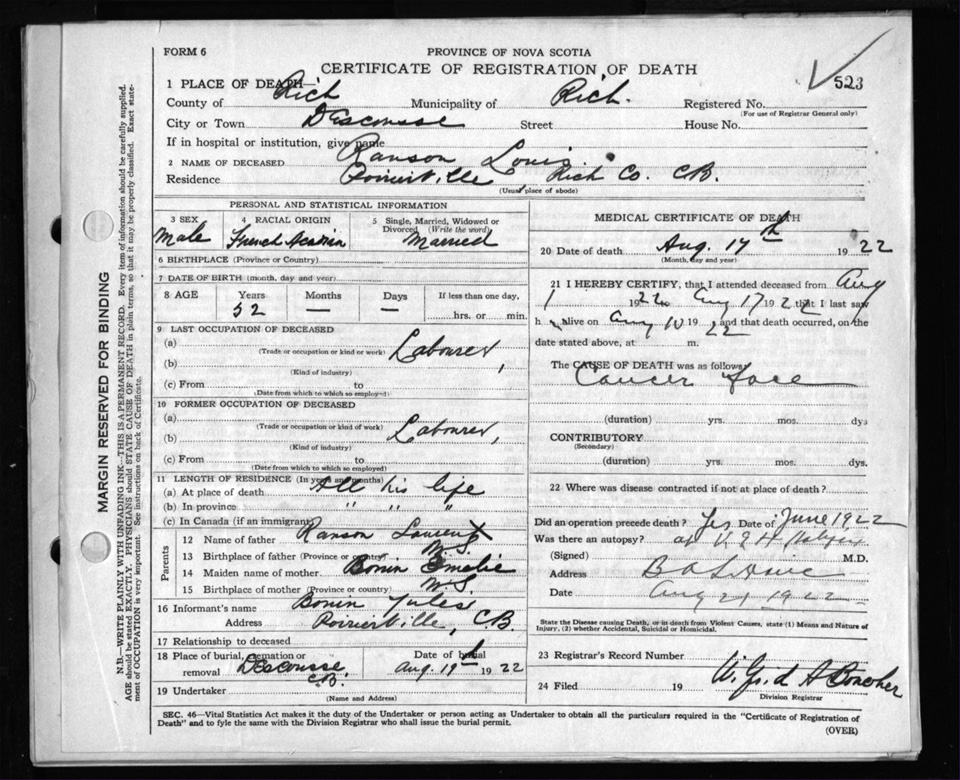 FORM 6
PROVINCE OF NOVA SCOTIA
CERTIFICATE OF REGISTRATION OF DEATH
523
1 PLACE OF DEATH—
County of Rich Municipality of Rich. Registered No.
(For use of Registrar General only)
City or Town D'Escousse Street House No.
If in hospital or institution, give name
2 NAME OF DECEASED Ranson Louis.
Residence Poirierville Rich Co. CB.
(Usual place of abode)
PERSONAL AND STATISTICAL INFORMATION
3 SEX
Male
4 RACIAL ORIGIN
French Acadian
5 Single, Married, Widowed or Divorced (Write the word)
Married
6 BIRTHPLACE (Province or Country)
7 DATE OF BIRTH (month, day and year)
8 AGE Years Months Days If less than one day,
52 — — hrs. or min.
9 LAST OCCUPATION OF DECEASED
(a) Labourer,
(Trade or occupation or kind or work)
(b)
(Kind of industry)
(c) From to
(Date from which to which so employed)
10 FORMER OCCUPATION OF DECEASED
(a)
(Trade or occupation or kind of work)
(b) Labourer,
(Kind of industry)
(c) From to
(Date from which to which so employed)
11 LENGTH OF RESIDENCE (In years and months)
(a) At place of death All his life
(b) In province " " "
(c) In Canada (if an immigrant)
Parents
12 Name of father Ranson Laurent
13 Birthplace of father (Province or country) N.S.
14 Maiden name of mother Bonin Emelie
15 Birthplace of mother (Province or country) N.S.
16 Informant's name Bonin Jules
Address Poirierville, CB.
17 Relationship to deceased
18 Place of burial, cremation or removal Descousse C.B.
Date of burial Aug. 19th 1922
19 Undertaker
(Name and Address)
MEDICAL CERTIFICATE OF DEATH
20 Date of death Aug. 17th 1922
(Month, day and year)
21 I HEREBY CERTIFY, that I attended deceased from Aug
1 1922 to Aug 17 1922 that I last saw
h alive on Aug 10 1922 and that death occurred, on the
date stated above, at m.
The CAUSE OF DEATH was as follows:
Cancer face
(duration) yrs. mos. dys
CONTRIBUTORY
(Secondary)
(duration) yrs. mos. dys.
22 Where was disease contracted if not at place of death?
Did an operation precede death? Yes Date of June 1922
Was there an autopsy? at V G H
(Signed) M.D.
Address
Date Aug 21 1922
State the Disease causing Death, or in death from Violent Causes, state (1) Means and Nature of
Injury, (2) whether Accidental, Suicidal or Homicidal.
23 Registrar's Record Number
24 Filed 19
Division Registrar
SEC. 46—Vital Statistics Act makes it the duty of the Undertaker or person acting as Undertaker to obtain all the particulars required in the "Certificate of Registration of
Death" and to fyle the same with the Division Registrar who shall issue the burial permit.
(OVER)
MARGIN RESERVED FOR BINDING
N.B.—WRITE PLAINLY WITH UNFADING INK—THIS IS A PERMANENT RECORD. Every item of information should be carefully supplied.
AGE should be stated EXACTLY. PHYSICIANS should STATE CAUSE OF DEATH in plain terms, so that it may be properly classified. Exact state-
ment of OCCUPATION is very important. See instructions on back of Certificate.